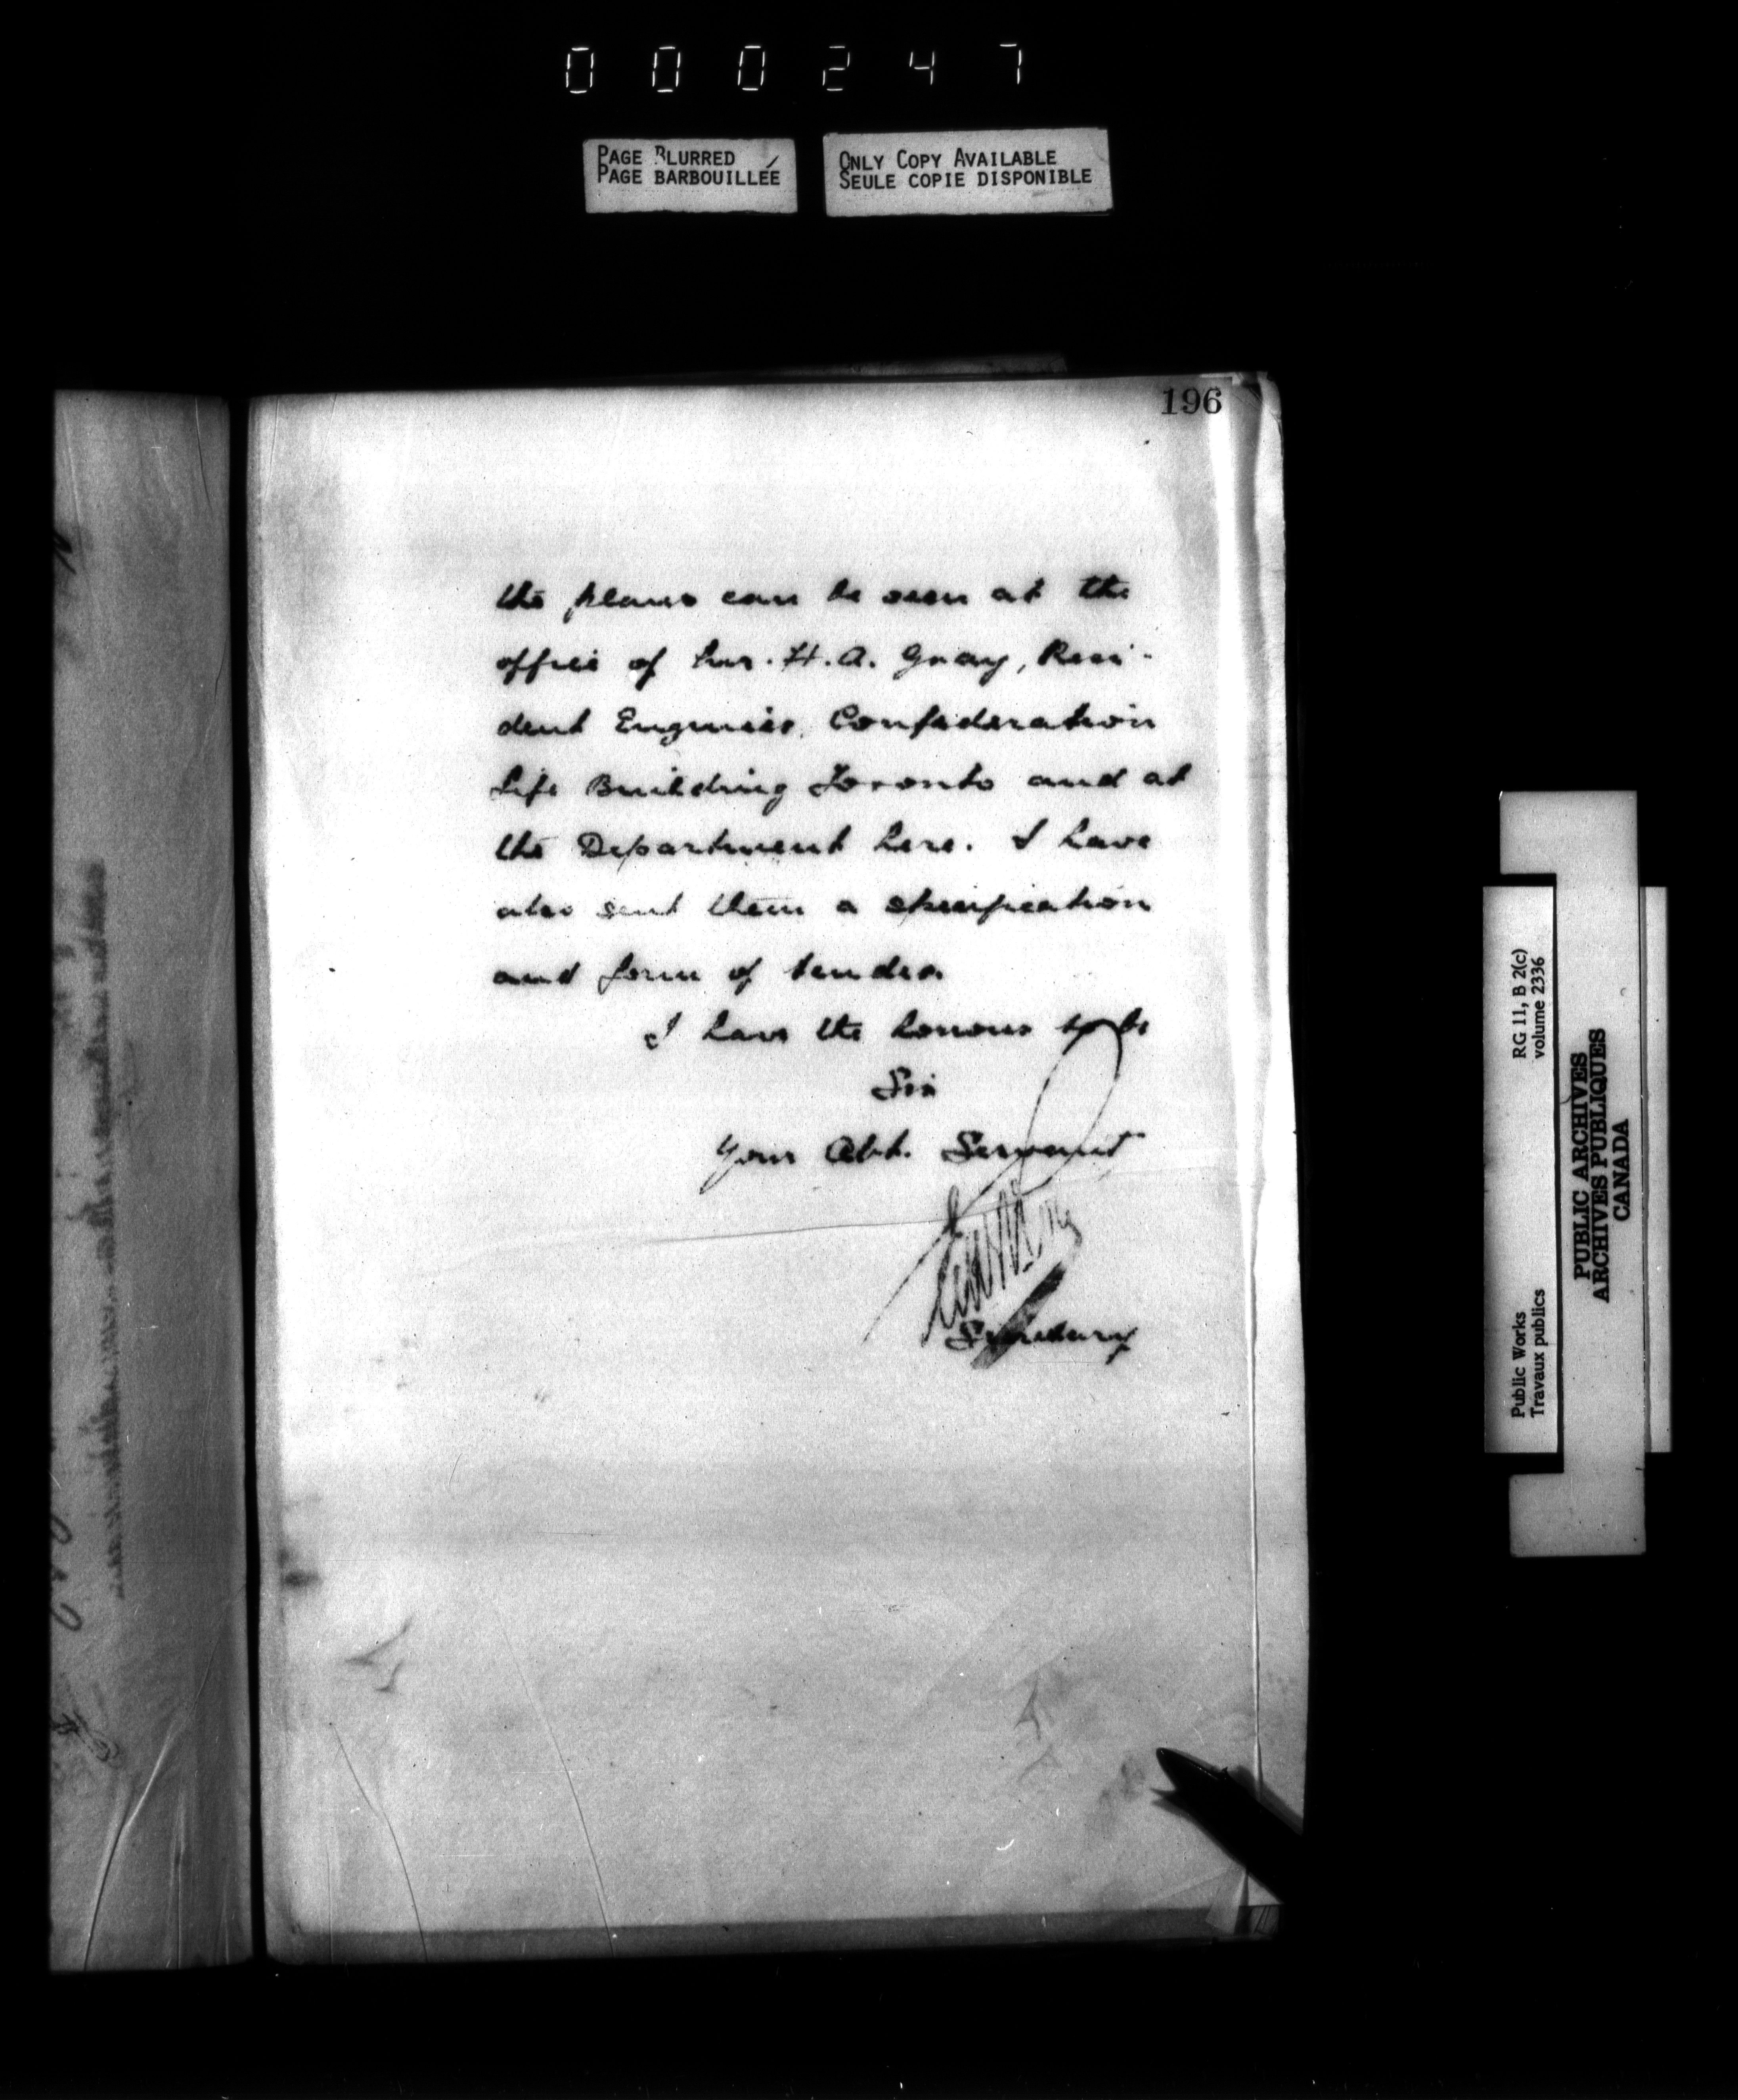 000247
PAGE BLURRED
PAGE BARBOUILLÉE
ONLY COPY AVAILABLE
SEULE COPIE DISPONIBLE
196
the plans can be seen at the
office of Mr. H. A. Gray, Resi-
dent Engineer, Confederation
Life Building Toronto and at
the Department here. I have
also sent them a specification
and form of tender.
I have the honour to be
Sir
Your Obt. Servant
Secretary
RG 11, B 2(c)
volume 2336
Public Works
Travaux publics
PUBLIC ARCHIVES
ARCHIVES PUBLIQUES
CANADA